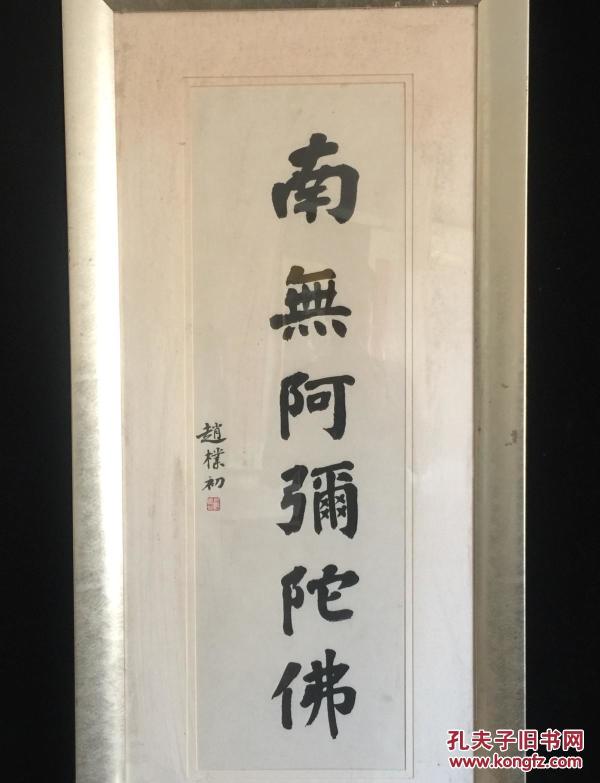 南無阿彌陀佛
趙樸初
孔夫子旧书网
www.kongfz.com